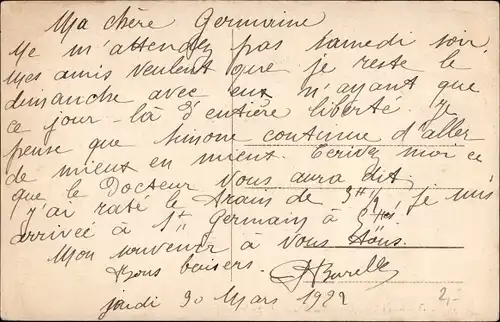 Ma chère Germaine
Ne m'attendez pas samedi soir.
Mes amis veulent que je reste le
dimanche avec eux n'ayant que
ce jour-là d'entière liberté. Je
pense que Simone continue d'aller
de mieux en mieux. Ecrivez moi ce
que le Docteur vous aura dit.
J'ai raté le train de 3H½ je suis
arrivée à St Germain à
Mon souvenir à Vous tous.
Bons baisers.
Jeudi 30 Mars 1922
2,-